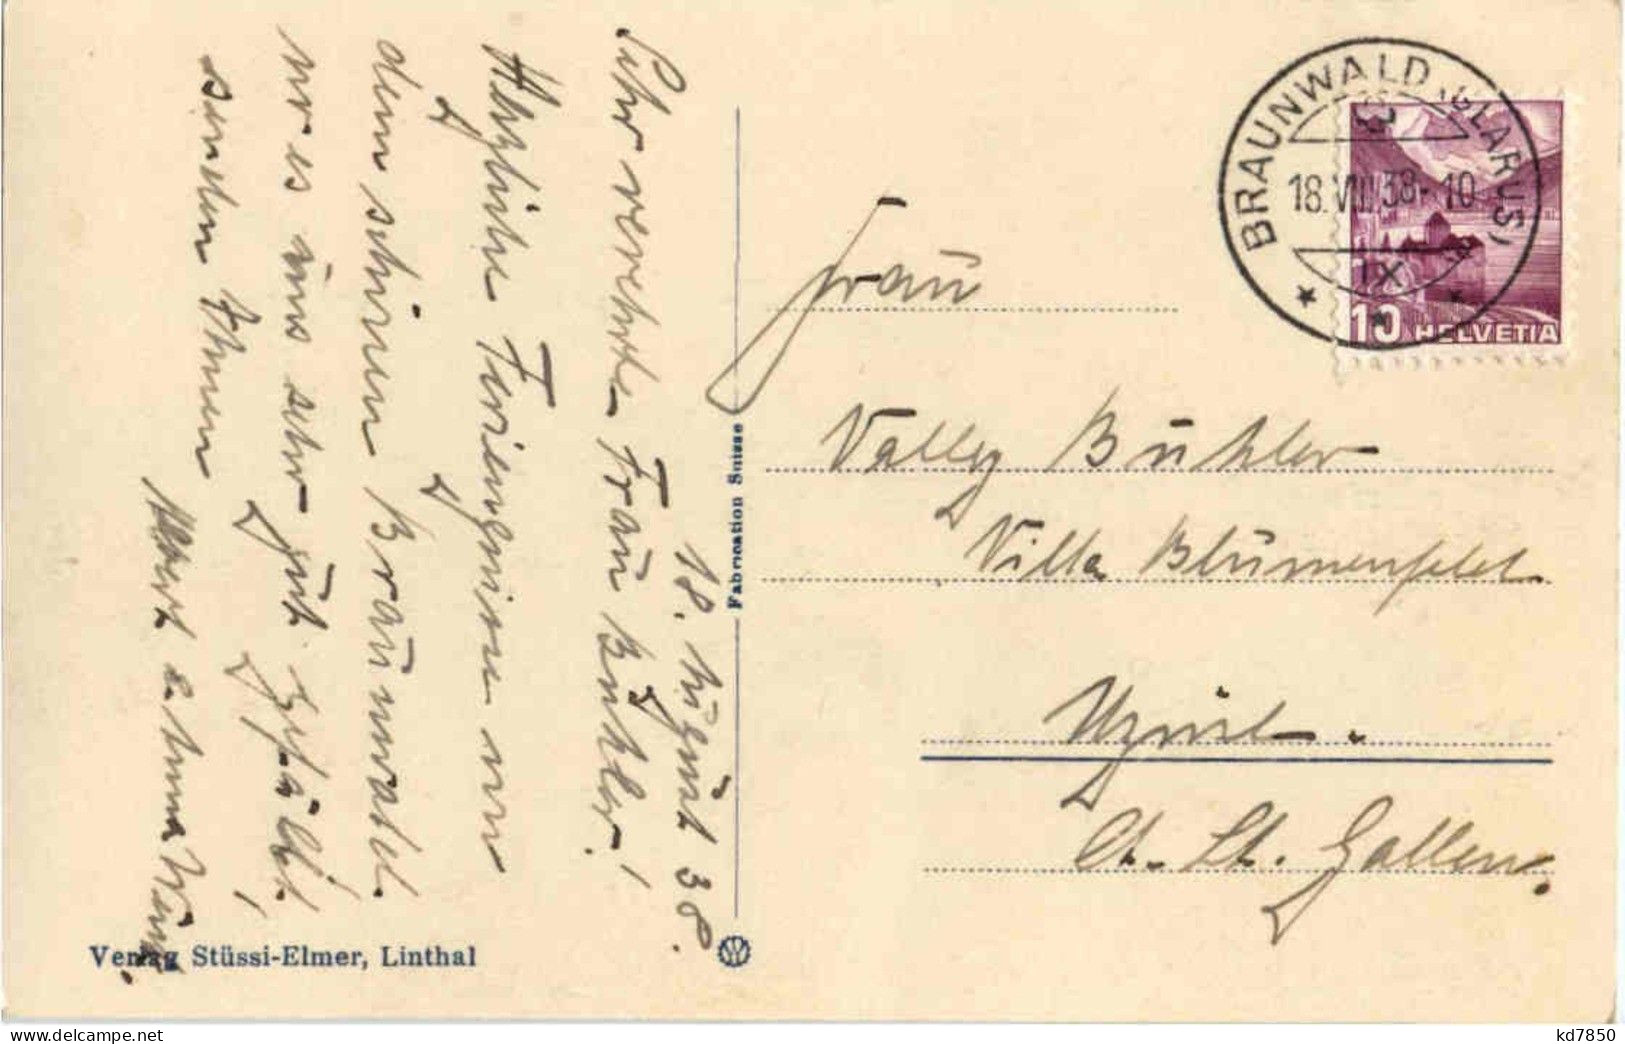 18. August 38.
Sehr verehrte Frau Bühler!
Herzliche Feriengrüsse von
dem schönen Braunwald
wo es uns sehr gut gefällt,
senden Ihnen
Albert & Anna
Verlag Stüssi-Elmer, Linthal
Fabrication Suisse
BRAUNWALD (GLARUS)
18.VIII.38-10
IX
10 HELVETIA
Frau
Vally Bühler
Villa Blumenfeld
Uznach.
Ct. St. Gallen.
kd7850